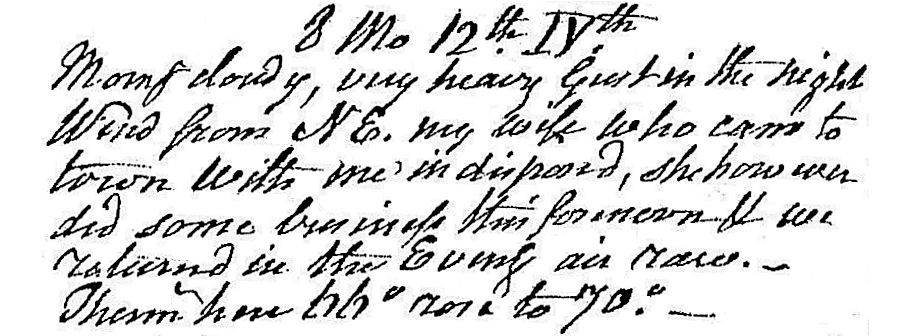 8 Mo 12th IVth
Morng cloudy, very heavy Gust in the night
Wind from NE. my wife who came to
town with me indisposed, she however
did some business this forenoon & we
returned in the Eveng air raw. –
Therm here 66° rose to 70.° —